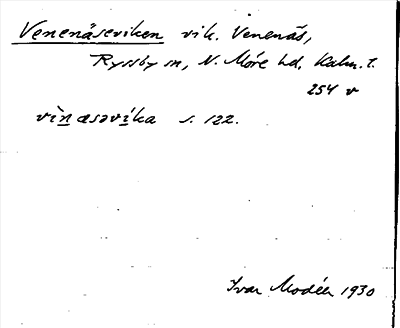 Venenäseviken vik. Venenäs,
Ryssby sn, N. Möre hd. Kalm. l.
254 v
vìnæsəvíka s. 122.
Ivar Modéer 1930